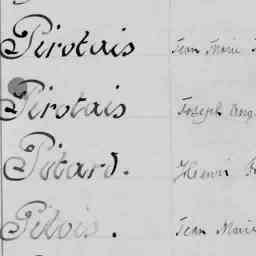 Pirotais Jean Marie
Pirotais Joseph Ang
Pitard. Henri
Pitois. Jean Marie